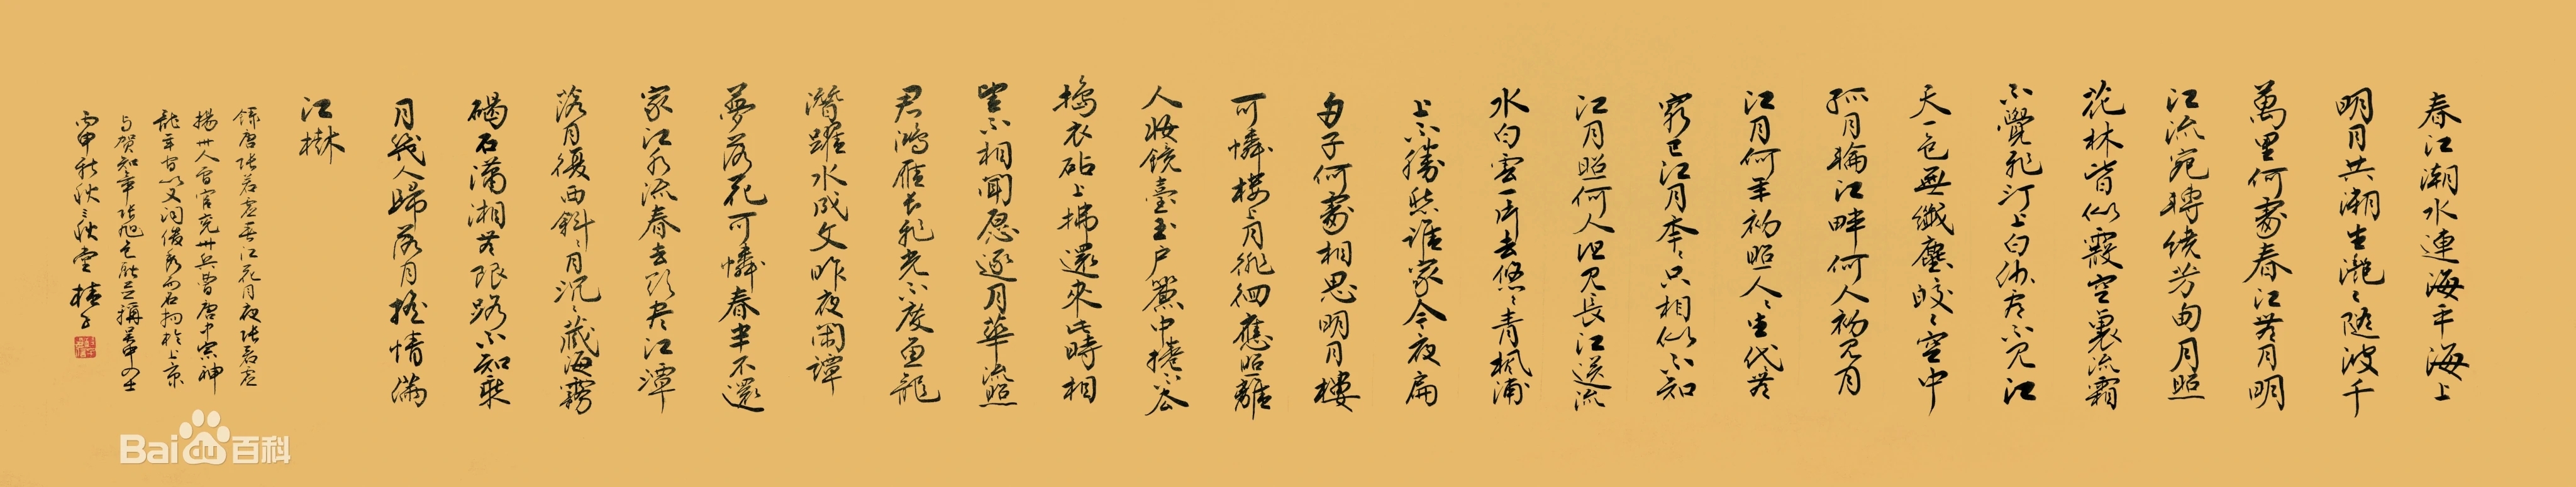 春江潮水連海平海上
明月共潮生灔〻隨波千
萬里何處春江無月明
江流宛轉繞芳甸月照
花林皆似霰空裏流霜
不覺飛汀上白沙看不見江
天一色無纖塵皎〻空中
孤月輪江畔何人初見月
江月何年初照人〻生代無
窮已江月年〻只相似不知
江月照何人但見長江送流
水白雲一片去悠〻青楓浦
上不勝愁誰家今夜扁
舟子何處相思明月樓
可憐樓上月徘徊應照離
人妝鏡臺玉戶簾中捲不去
搗衣砧上拂還來此時相
望不相聞願逐月華流照
君鴻雁長飛光不度魚龍
潛躍水成文昨夜閑潭
夢落花可憐春半不還
家江水流春去欲盡江潭
落月復西斜〻月沉〻藏海霧
碣石瀟湘無限路不知乘
月幾人歸落月搖情滿
江樹
錄唐張若虛春江花月夜張若虛
揚州人曾官兗州兵曹唐中宗神
龍年間以文詞俊秀而名揚於上京
與賀知章張旭包融並稱吳中四士
丙申初秋
Baidu百科